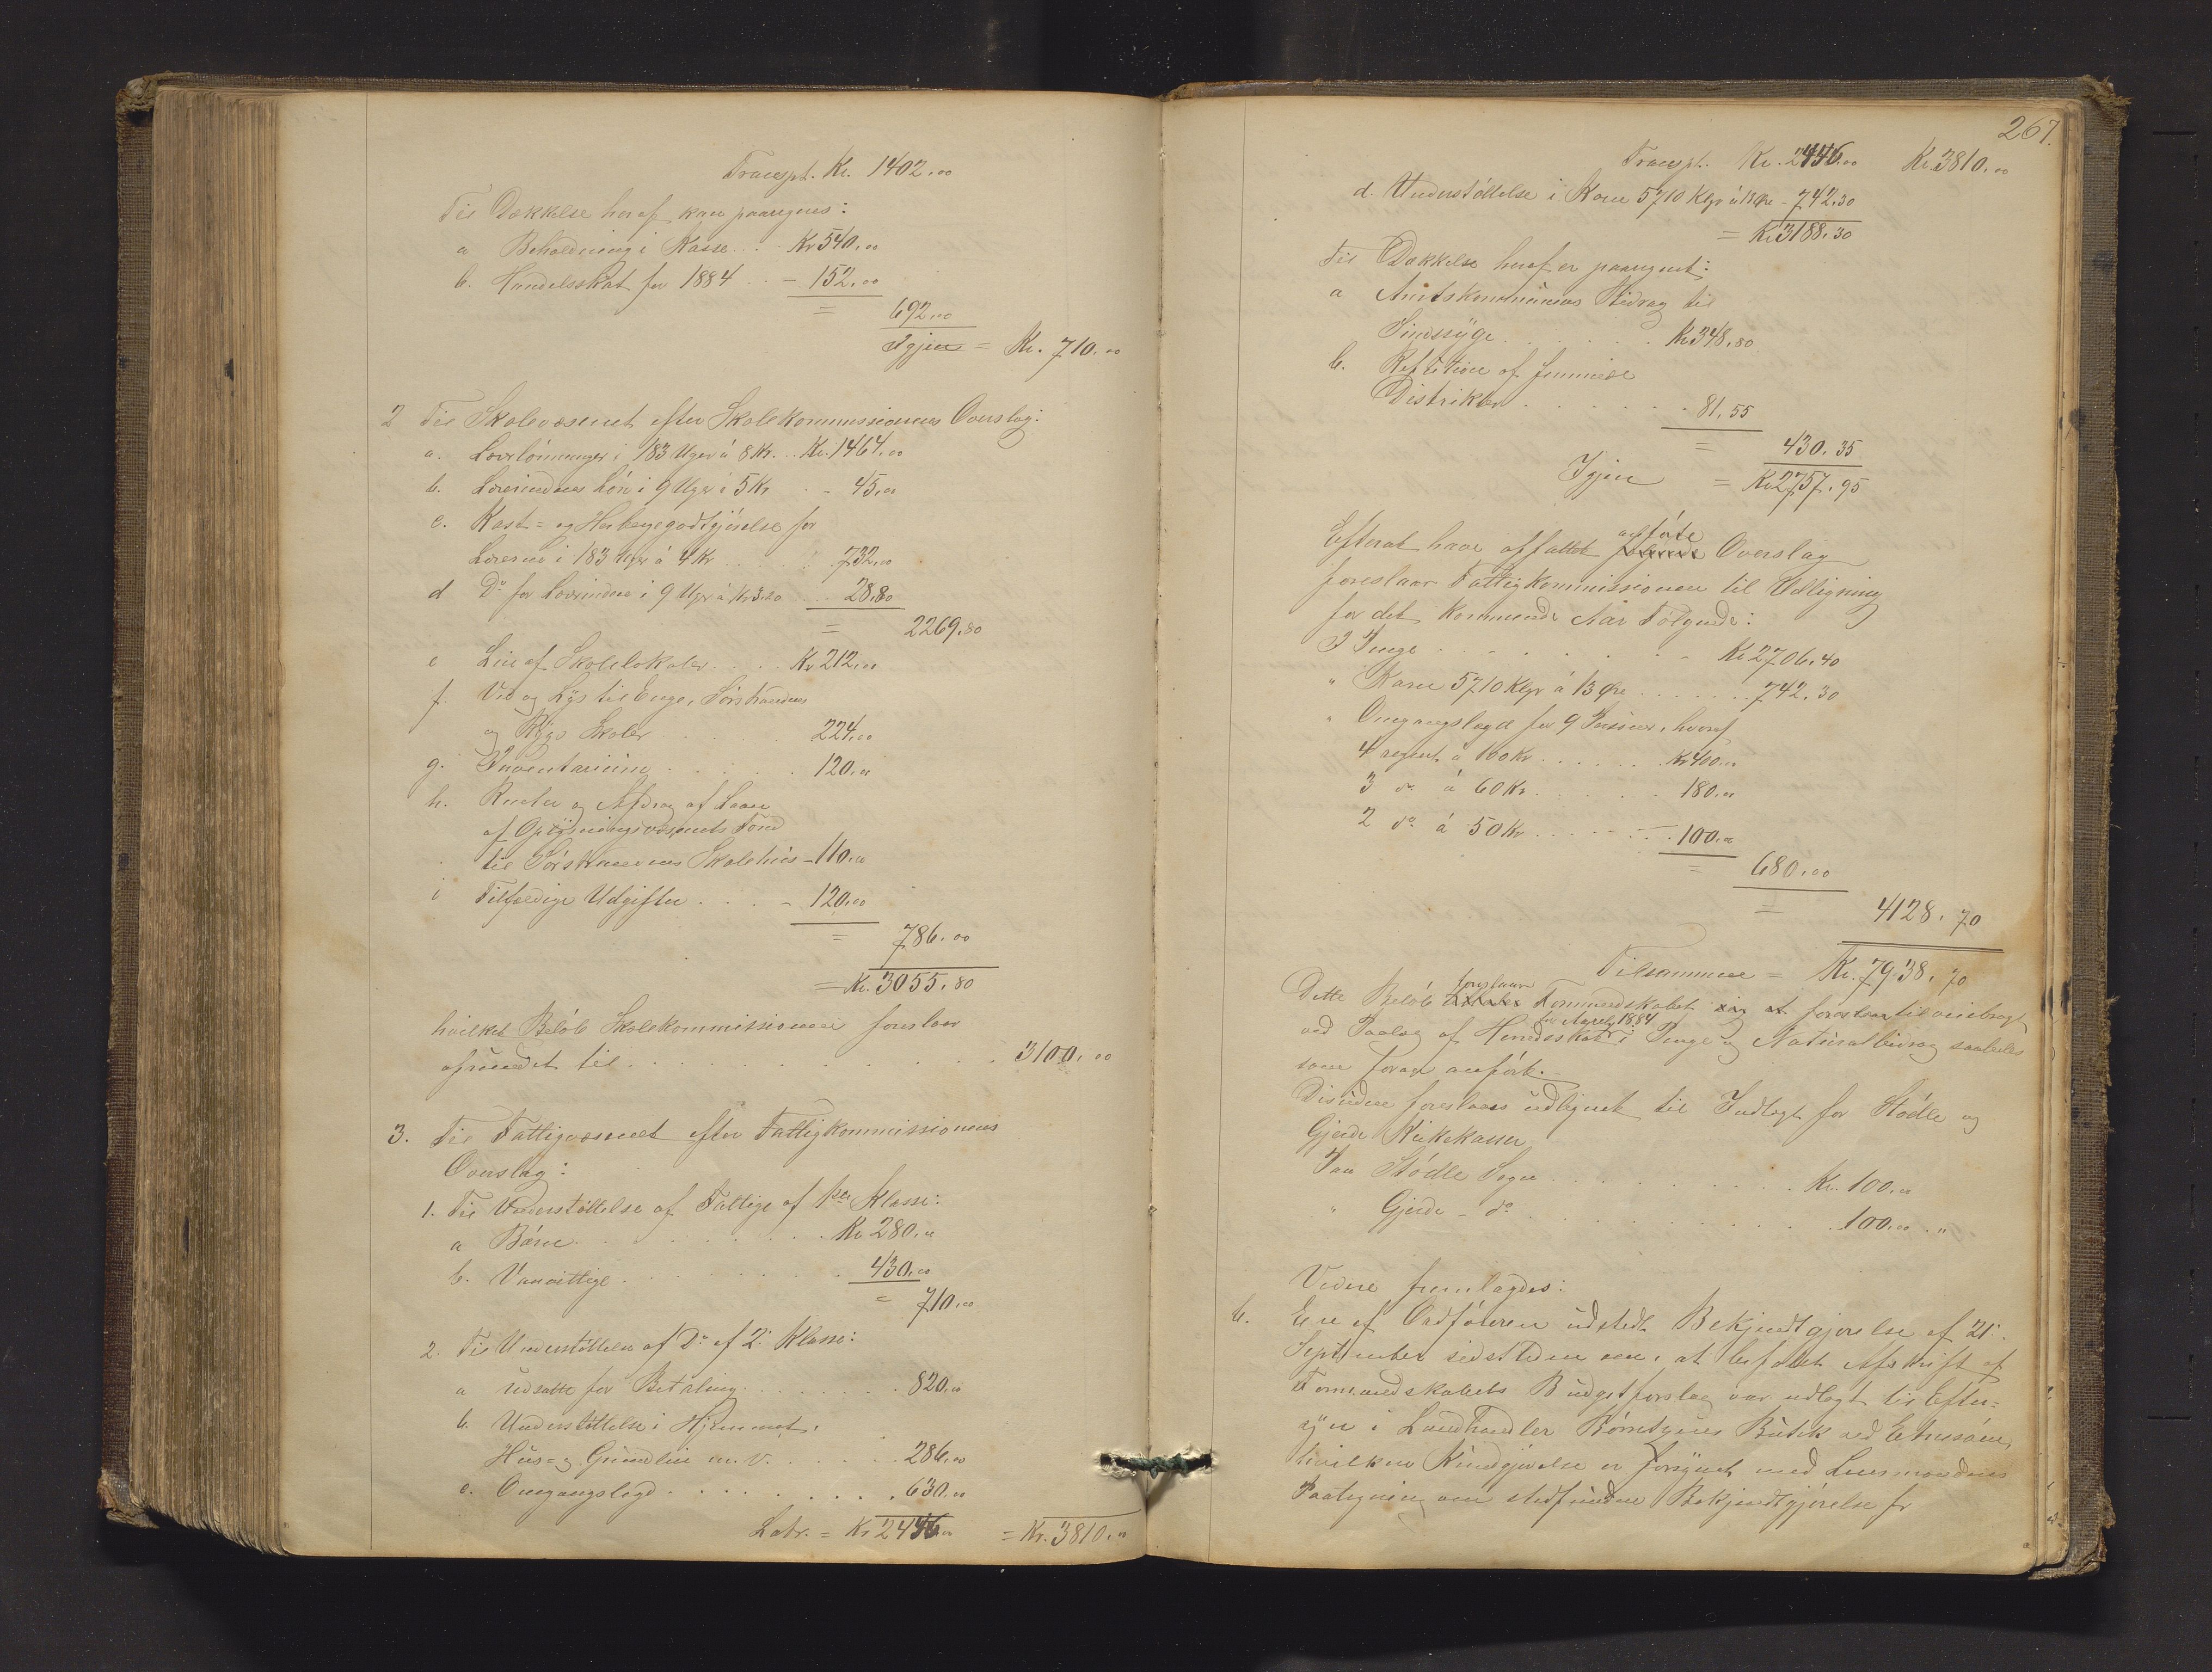 Transpt. Kr. 1402.00
Til Dækkelse heraf kan paaregnes:
a Beholdning i Kasse . . Kr 540.00
b. Handelsskat for 1884 . . - 152.00
= 692.00
Igjen = Kr. 710.00
2 Til Skolevæsenet efter Skolekommissionens Overslag:
a. Lærlønninger i 183 Uger á 8 Kr. . Kr. 1464.00
b. Lærerindens Løn i 9 Uger á 5 Kr . - 45.00
c. Kost- og Herbergegodtgjørelse for
Lærerne i 183 Uger á 4 Kr . . . 732.00
d Do for Lærerinden i 9 Uger á Kr 3.20 . . 28.80
= 2269.80
e Leie af Skolelokaler . . . . Kr 212.00
f. Ved og Lys til Enge, Sørstrandens
og Rygs Skoler . . . . . 224.00
g. Inventarium . . . . . 120.00
h. Renter og Afdrag af Laan
af Oplysningsvæsenets Fond
til Sørstrandens Skolehus - 110.00
i Tilfældige Udgifter . . . . - 120.00
= 786.00
= Kr. 3055.80
hvilket Beløb Skolekommissionen foreslaar
afrundet til . . . . . . . . . . . 3100.00
3. Til Fattigvæsenet efter Fattigkommissionens
Overslag:
1. Til Understøttelse af Fattige af 1ste Klasse:
a Børn . . . . . . . . . Kr 280.00
b. Vanvittige . . . . . . . . 430.00
= 710.00
2. Til Understøttelse af Do af 2. Klasse:
a udsatte for Betaling . . . . . . . 820.00
b. Understøttelse i Hjemmet,
Hus- og Grundleie m. v. . . . . . 286.00
c. Omgangslægd . . . . . . . . . 630.00
Latr. = Kr 2446.00 = Kr. 3810.00
267.
Transpt. Kr. 2446.00 Kr. 3810.00
d. Understøttelse i Korn 5710 Klgr á 13 Øre - 742.30
= Kr 3188.30
Til Dækkelse heraf er paaregnet:
a Amtskommunens Bidrag til
Sindssyge . . . . . . . Kr 348.80
b. Refution af fremmede
Distrikter . . . . . . . 81.55
= 430.35
Igjen = Kr 2757.95
anførte
Efterat have affattet følgende Overslag
foreslaar Fattigkommissionen til Udligning
for det kommende Aar Følgende:
I Penge . . . . . . . . - Kr 2706.40
" Korn 5710 Klgr á 13 Øre . . . . . . . 742.30
" Omgangslægd for 9 Personer, hvoraf
4 regnet á 100 Kr . . . . . . Kr 400.00
3 do á 60 Kr . . . . . . 180.00
2 do á 50 Kr . . . . . . . . 100.00
= 680.00
= 4128.70
Tilsammen = Kr. 7938.70
foreslaar
Dette Beløb Formandskabet sig at tilveiebragt
for Aaret 1884
ved Paalæg af Herredsskat i Penge og Naturalbidrag saaledes
som foran anført.
Desuden foreslaaes udlignet til Indtægt for Stødle og
Gjerde Kirkekasser
Paa Stødle Sogn . . . . . . . . . . Kr. 100.00
" Gjerde - do . . . . . . . . . . . 100.00 . "
Videre fremlagdes:
b. En af Ordføreren udstedt Bekjendtgjørelse af 21.
September sidstleden om, at befalet Afskrift af
Formandskabets Budgetforslag var udlagt til Efter-
syn i Landhandler Børretzens Butik ved Etnesøen,
hvilken Kundgjørelse er forsynet med Lensmandens
Paategning om stedfunden Bekjendtgjørelse fr